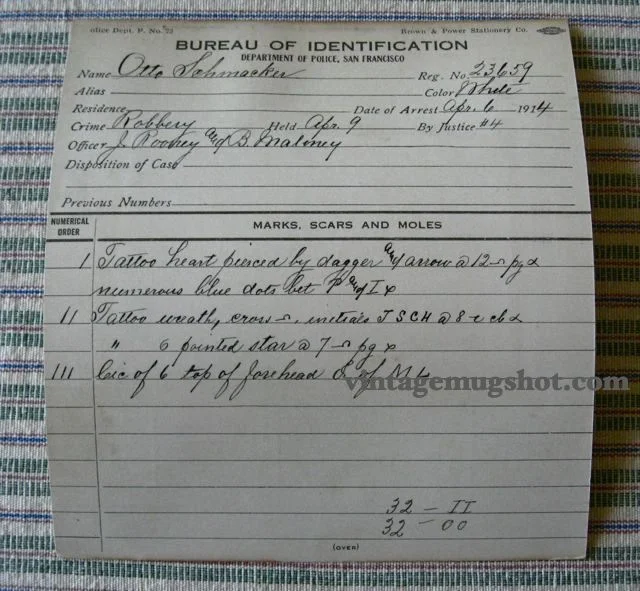 olice Dept. P. No. 73 Brown & Power Stationery Co.
BUREAU OF IDENTIFICATION
DEPARTMENT OF POLICE, SAN FRANCISCO
Name Otto Schmacker Reg. No 23659
Alias Color White
Residence Date of Arrest Apr. 6 1914
Crime Robbery Held Apr. 9 By Justice #4
Officer J. Rooney and B. Maloney
Disposition of Case
Previous Numbers
NUMERICAL ORDER MARKS, SCARS AND MOLES
I Tattoo heart pierced by dagger and arrow @ 12
numerous blue dots bet P and I
II Tattoo wreath, cross initials J S C H @ 8
" 6 pointed star @ 7
III Cic of 6 top of forehead of M L
vintagemugshot.com
32 — II
32 — 00
(OVER)